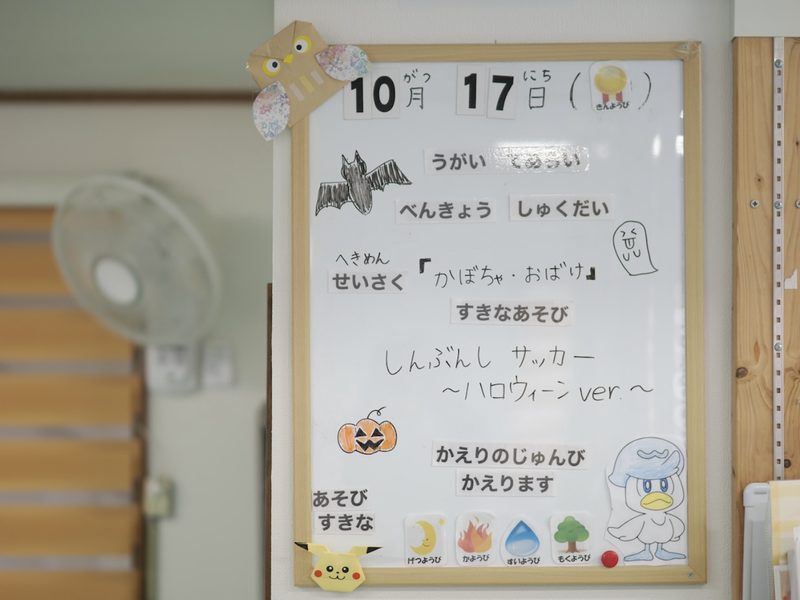 10月 17日 ( きんようび )
がつ にち
うがい てあらい
べんきょう しゅくだい
へきめん
せいさく 『かぼちゃ・おばけ』
すきなあそび
しんぶんし サッカー
～ハロウィーンver.～
かえりのじゅんび
かえります
あそび
すきな
げつようび かようび すいようび もくようび